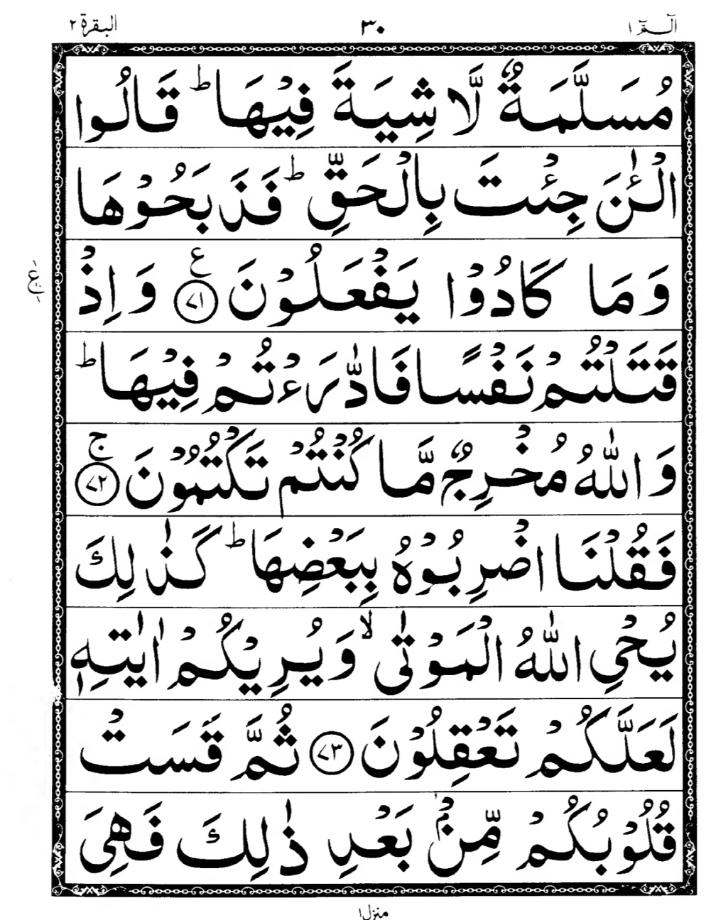 الٓمّٓ ١ ٣٠ البقرة ٢
مُسَلَّمَةٌ لَّا شِيَةَ فِيْهَا ؕ قَالُوا
الْـٰٔنَ جِئْتَ بِالْحَقِّ ؕ فَذَبَحُوْهَا
وَمَا كَادُوْا يَفْعَلُوْنَ ﴿٧١﴾ ع وَاِذْ
ع
قَتَلْتُمْ نَفْسًا فَادّٰرَءْتُمْ فِيْهَا ؕ
وَاللّٰهُ مُخْرِجٌ مَّا كُنْتُمْ تَكْتُمُوْنَ ﴿٧٢﴾ ۚ
فَقُلْنَا اضْرِبُوْهُ بِبَعْضِهَا ؕ كَذٰلِكَ
يُحْيِ اللّٰهُ الْمَوْتٰى ۙ وَيُرِيْكُمْ اٰيٰتِهٖ
لَعَلَّكُمْ تَعْقِلُوْنَ ﴿٧٣﴾ ثُمَّ قَسَتْ
قُلُوْبُكُمْ مِّنْۢ بَعْدِ ذٰلِكَ فَهِيَ
منزل ١